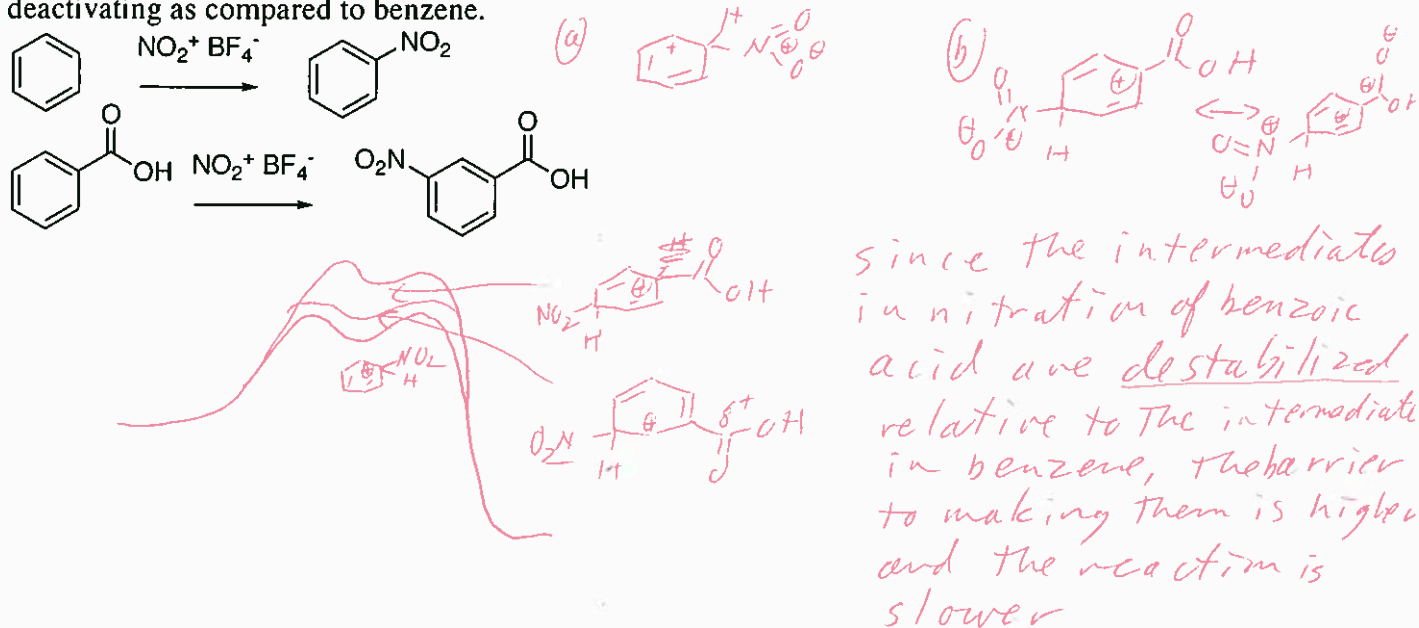 deactivating as compared to benzene.
NO2+ BF4-
NO2
(a)
+
N
O
O
(b)
O
OH
H
O
OH
NO2+ BF4-
O2N
O
OH
O=N
H
NO2
H
NO2
H
O
OH
O2N
H
δ+
OH
O
since the intermediates
in nitration of benzoic
acid are destabilized
relative to the intermediate
in benzene, the barrier
to making them is higher
and the reaction is
slower